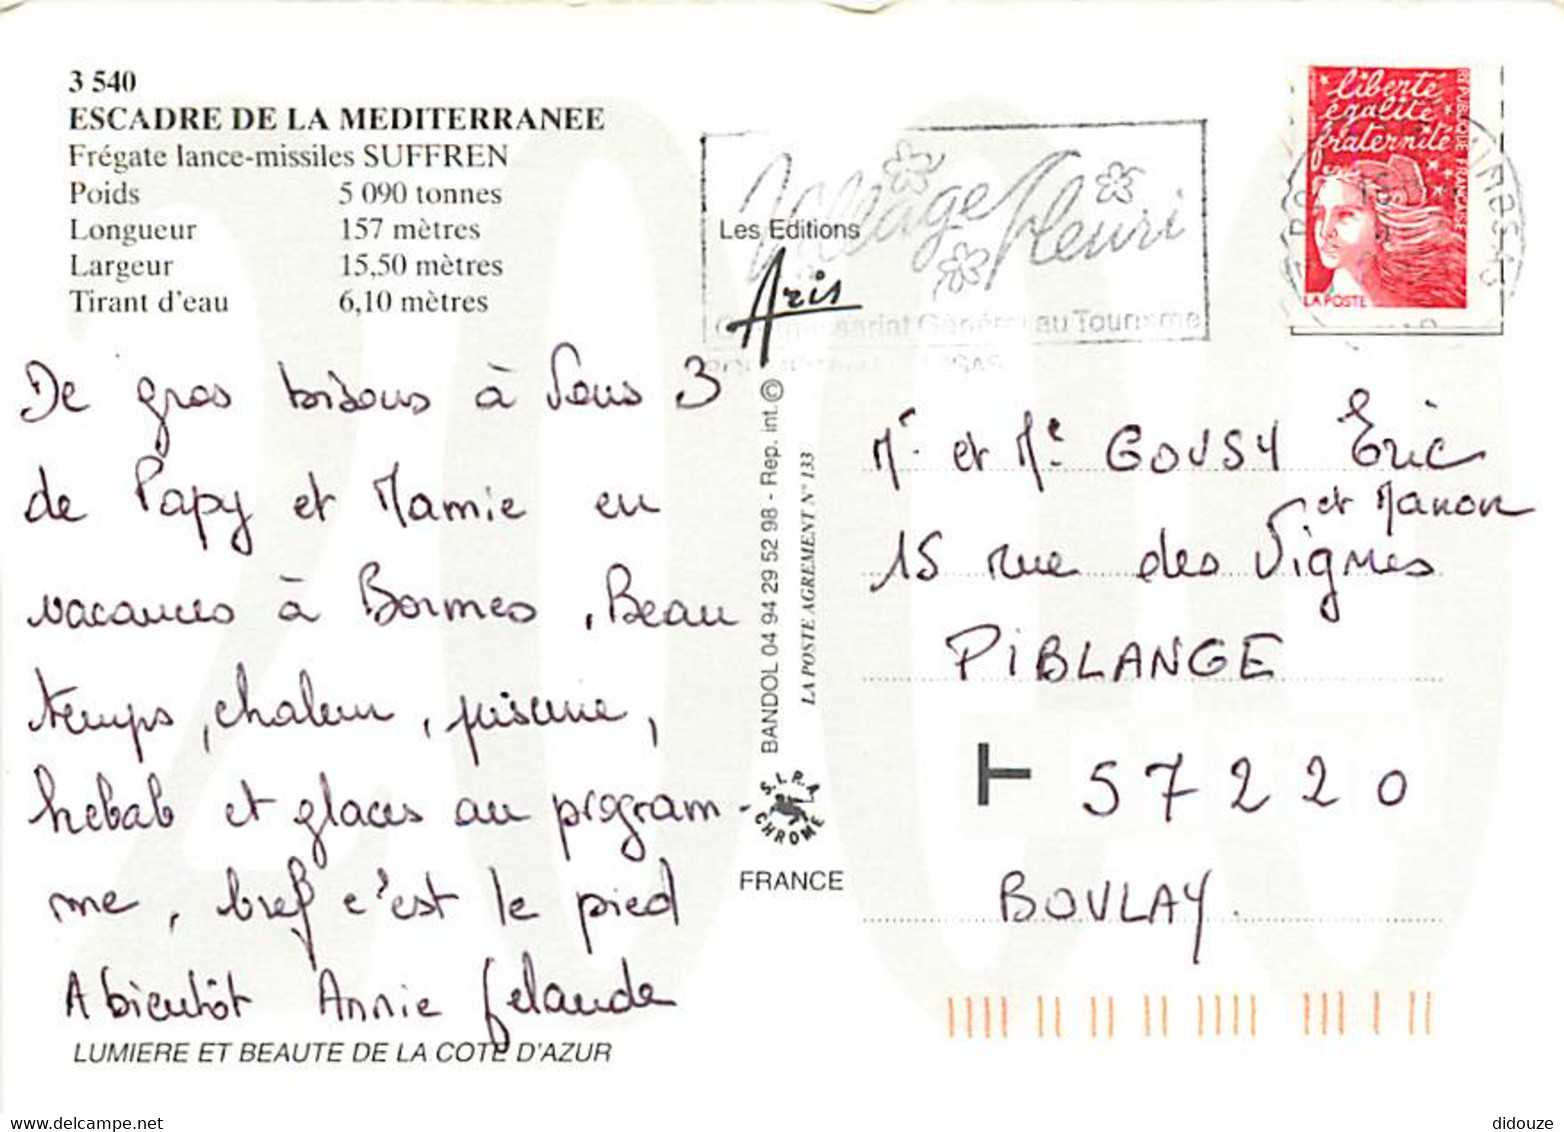 3 540
ESCADRE DE LA MEDITERRANEE
Frégate lance-missiles SUFFREN
Poids 5 090 tonnes
Longueur 157 mètres
Largeur 15,50 mètres
Tirant d'eau 6,10 mètres
De gros bisous à Vous 3
de Papy et Mamie en
vacances à Bormes, Beau
temps, chaleur, piscine,
kebab et glaces au program-
me, bref c'est le pied
A bientôt Annie
LUMIERE ET BEAUTE DE LA COTE D'AZUR
Village Fleuri
Les Editions
Aris
Général au Tourisme
BANDOL 04 94 29 52 98 - Rep. int. ©
LA POSTE AGREMENT N° 133
S.I.R.A.
CHROME
FRANCE
liberté
égalité
fraternité
REPUBLIQUE FRANÇAISE
LA POSTE
Mr et Me GOUSY Eric
et Manon
15 rue des Vignes
PIBLANGE
T 57220
BOULAY.
delcampe.net
didouze